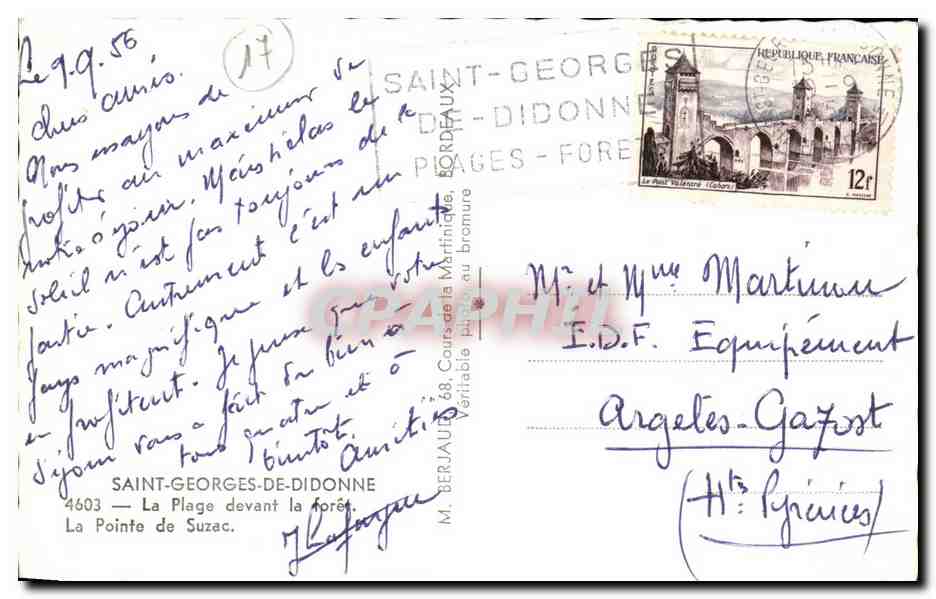 Le 9.9.56
17
chers amis.
Nous essayons de
profiter au maximum de
notre séjour. Mais hélas le
soleil n'est pas toujours de la
partie. Autrement c'est un
pays magnifique et les enfants
en profitent. Je pense que votre
séjour vous a fait du bien à
tous quatre et à
bientôt.
Amitiés
SAINT-GEORGES-DE-DIDONNE
4603 — La Plage devant la forêt.
La Pointe de Suzac.
M. BERJAUD, 68, Cours de la Martinique, BORDEAUX
Véritable photo au bromure
SAINT-GEORGES
DE-DIDONNE
PLAGES-FORET
REPUBLIQUE FRANÇAISE
Le Pont Valentré (Cahors)
12f
CPAPHIL
Mr et Mme Martinon
E.D.F. Equipement
Argelès-Gazost
(Htes Pyrénées)